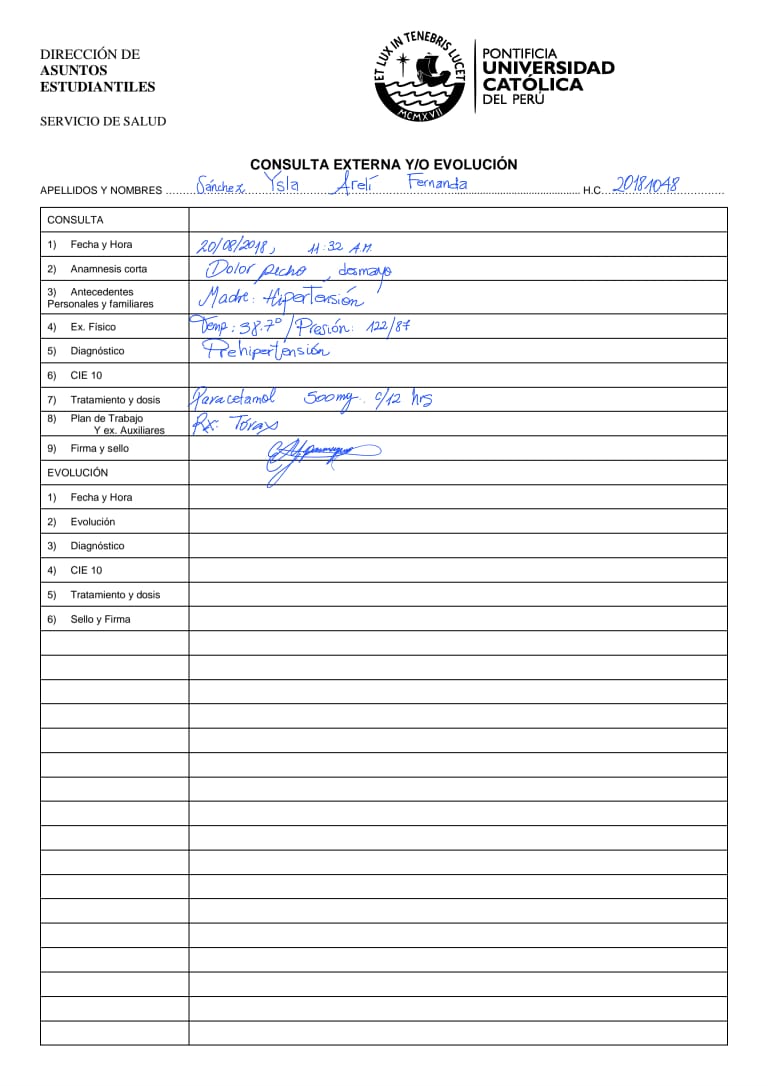 DIRECCIÓN DE
ASUNTOS
ESTUDIANTILES
SERVICIO DE SALUD
ET LUX IN TENEBRIS LUCET
MCMXVII
PONTIFICIA
UNIVERSIDAD
CATÓLICA
DEL PERÚ
CONSULTA EXTERNA Y/O EVOLUCIÓN
APELLIDOS Y NOMBRES Sánchez Ysla Arelí Fernanda H.C. 20181048
CONSULTA
1) Fecha y Hora 20/08/2018, 11:32 A.M.
2) Anamnesis corta Dolor pecho, desmayo
3) Antecedentes
Personales y familiares Madre: Hipertensión
4) Ex. Físico Temp: 38.7° / Presión: 122/87
5) Diagnóstico Prehipertensión
6) CIE 10
7) Tratamiento y dosis Paracetamol 500mg. c/12 hrs
8) Plan de Trabajo
Y ex. Auxiliares Rx: Tórax
9) Firma y sello
EVOLUCIÓN
1) Fecha y Hora
2) Evolución
3) Diagnóstico
4) CIE 10
5) Tratamiento y dosis
6) Sello y Firma